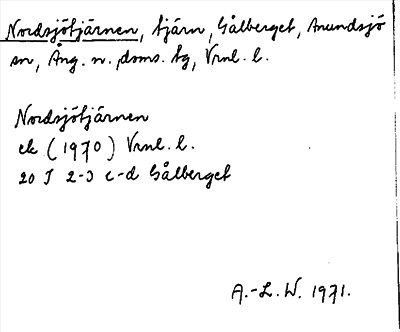 Nordsjötjärnen, tjärn, Gålberget, Anundsjö
sn, Ång. n. doms. tg, Vrnl. l.
Nordsjötjärnen
ek (1970) Vrnl. l.
20 J 2-3 c-d Gålberget
A.-L.W. 1971.